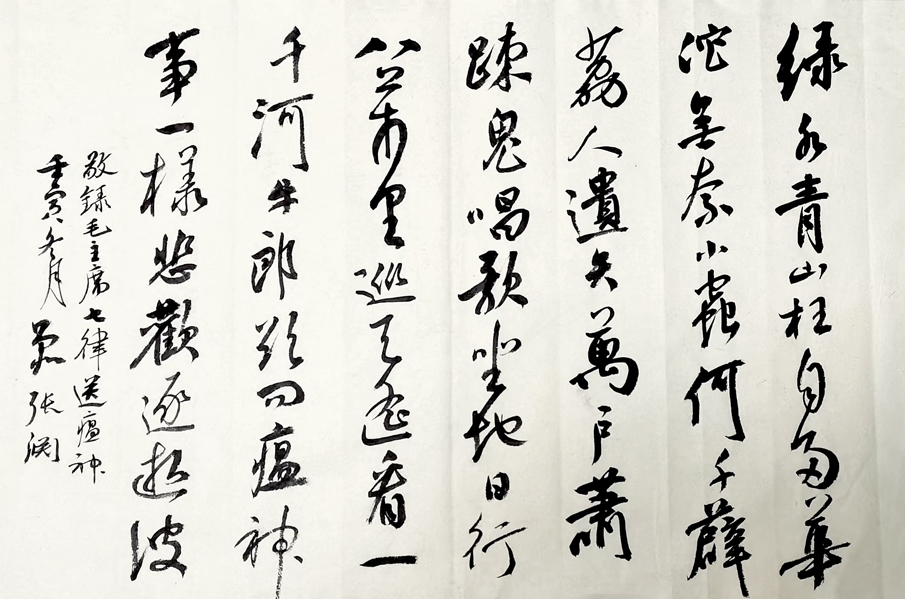 绿水青山枉自多華
沱無奈小蟲何千薜
荔人遺矢萬戶蕭
踈鬼唱歌坐地日行
八萬里巡天遙看一
千河牛郎欲问瘟神
事一樣悲歡逐逝波
敬録毛主席七律送瘟神
壬寅冬月 张